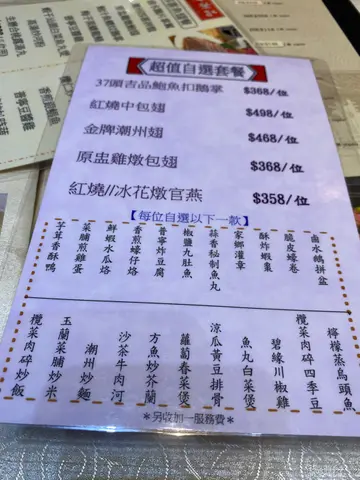 超值自選套餐
37頭吉品鮑魚扣鵝掌 $368/位
紅燒中包翅 $498/位
金牌潮州翅 $468/位
原盅雞燉包翅 $368/位
紅燒//冰花燉官燕 $358/位
【每位自選以下一款】
鹵水鵝拼盆
脆皮蠔卷
酥炸蝦棗
家鄉灌章
蒜香秘制魚丸
椒鹽九肚魚
普寧炸豆腐
香煎蠔仔烙
鮮蝦水瓜烙
菜脯煎雞蛋
芋茸香酥鴨
檸檬蒸烏頭魚
欖菜肉碎四季豆
碧綠川椒雞
魚丸白菜煲
涼瓜黃豆排骨
蘿蔔春菜煲
方魚炒芥蘭
沙茶牛肉河
潮州炒麵
玉蘭菜脯炒米
欖菜肉碎炒飯
*另收加一服務費*